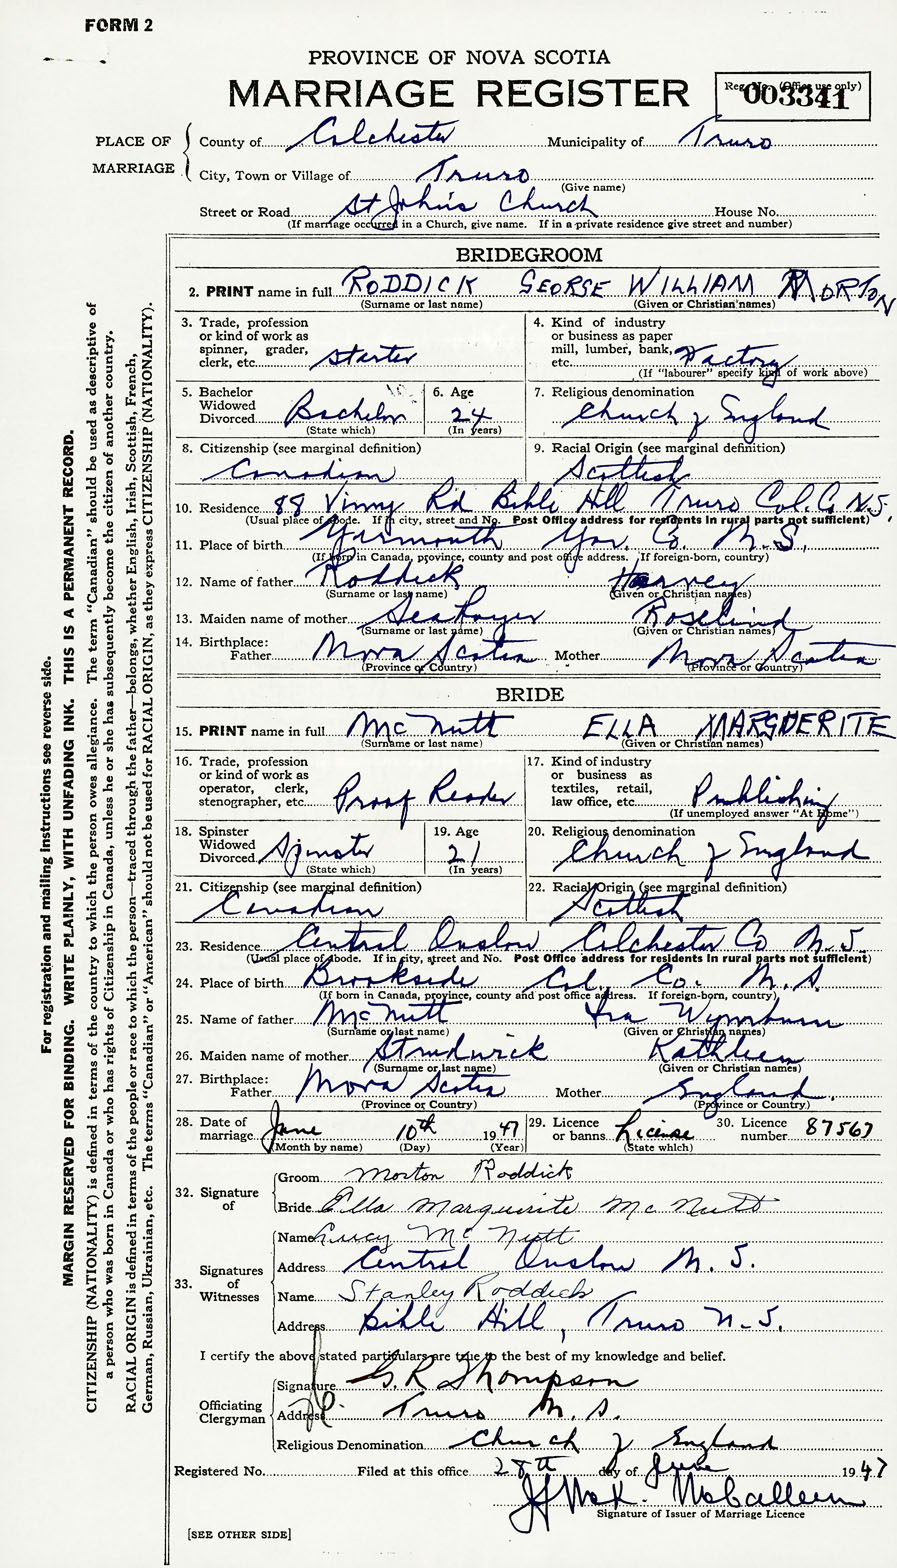 FORM 2
PROVINCE OF NOVA SCOTIA
MARRIAGE REGISTER
Reg. No. (Office use only)
003341
PLACE OF MARRIAGE
County of Colchester Municipality of Truro
City, Town or Village of Truro
(Give name)
Street or Road St John's Church House No.
(If marriage occurred in a Church, give name. If in a private residence give street and number)
BRIDEGROOM
2. PRINT name in full RODDICK GEORGE WILLIAM MORTON
(Surname or last name) (Given or Christian names)
3. Trade, profession or kind of work as spinner, grader, clerk, etc. Starter
4. Kind of industry or business as paper mill, lumber, bank, etc. Factory
(If "labourer" specify kind of work above)
5. Bachelor Widowed Divorced Bachelor
(State which)
6. Age 24
(In years)
7. Religious denomination Church of England
8. Citizenship (see marginal definition) Canadian
9. Racial Origin (see marginal definition) Scottish
10. Residence 88 Vimy Rd Bible Hill Truro Col. Co N.S.
(Usual place of abode. If in city, street and No. Post Office address for residents in rural parts not sufficient)
11. Place of birth Yarmouth Yar. Co. N.S.
(If born in Canada, province, county and post office address. If foreign-born, country)
12. Name of father Roddick Harvey
(Surname or last name) (Given or Christian names)
13. Maiden name of mother Roselind
(Surname or last name) (Given or Christian names)
14. Birthplace: Father Nova Scotia Mother Nova Scotia
(Province or Country) (Province or Country)
BRIDE
15. PRINT name in full McNutt ELLA MARGUERITE
(Surname or last name) (Given or Christian names)
16. Trade, profession or kind of work as operator, clerk, stenographer, etc. Proof Reader
17. Kind of industry or business as textiles, retail, law office, etc. Publishing
(If unemployed answer "At Home")
18. Spinster Widowed Divorced Spinster
(State which)
19. Age 21
(In years)
20. Religious denomination Church of England
21. Citizenship (see marginal definition) Canadian
22. Racial Origin (see marginal definition) Scottish
23. Residence Central Onslow Colchester Co N.S.
(Usual place of abode. If in city, street and No. Post Office address for residents in rural parts not sufficient)
24. Place of birth Brookside Col. Co. N.S.
(If born in Canada, province, county and post office address. If foreign-born, country)
25. Name of father McNutt Ira
(Surname or last name) (Given or Christian names)
26. Maiden name of mother Strudwick Kathleen
(Surname or last name) (Given or Christian names)
27. Birthplace: Father Nova Scotia Mother England.
(Province or Country) (Province or Country)
28. Date of marriage June 10th 1947
(Month by name) (Day) (Year)
29. Licence or banns License
(State which)
30. Licence number 87567
32. Signature of
Groom Morton Roddick
Bride Ella Marguerite McNutt
33. Signatures of Witnesses
Name Lucy McNutt
Address Central Onslow N.S.
Name Stanley Roddick
Address Bible Hill, Truro N.S.
I certify the above stated particulars are true to the best of my knowledge and belief.
Officiating Clergyman
Signature G.R Thompson
Address Truro N.S.
Religious Denomination Church of England
Registered No. Filed at this office 28th day of June 1947
Signature of Issuer of Marriage Licence
[SEE OTHER SIDE]
For registration and mailing instructions see reverse side.
MARGIN RESERVED FOR BINDING. WRITE PLAINLY, WITH UNFADING INK. THIS IS A PERMANENT RECORD.
CITIZENSHIP (NATIONALITY) is defined in terms of the country to which the person owes allegiance. The term "Canadian" should be used as descriptive of
a person who was born in Canada or who has rights of Citizenship in Canada, unless he or she has subsequently become the citizen of another country.
RACIAL ORIGIN is defined in terms of the people or race to which the person—traced through the father—belongs, whether English, Irish, Scottish, French,
German, Russian, Ukrainian, etc. The terms "Canadian" or "American" should not be used for RACIAL ORIGIN, as they express CITIZENSHIP (NATIONALITY).